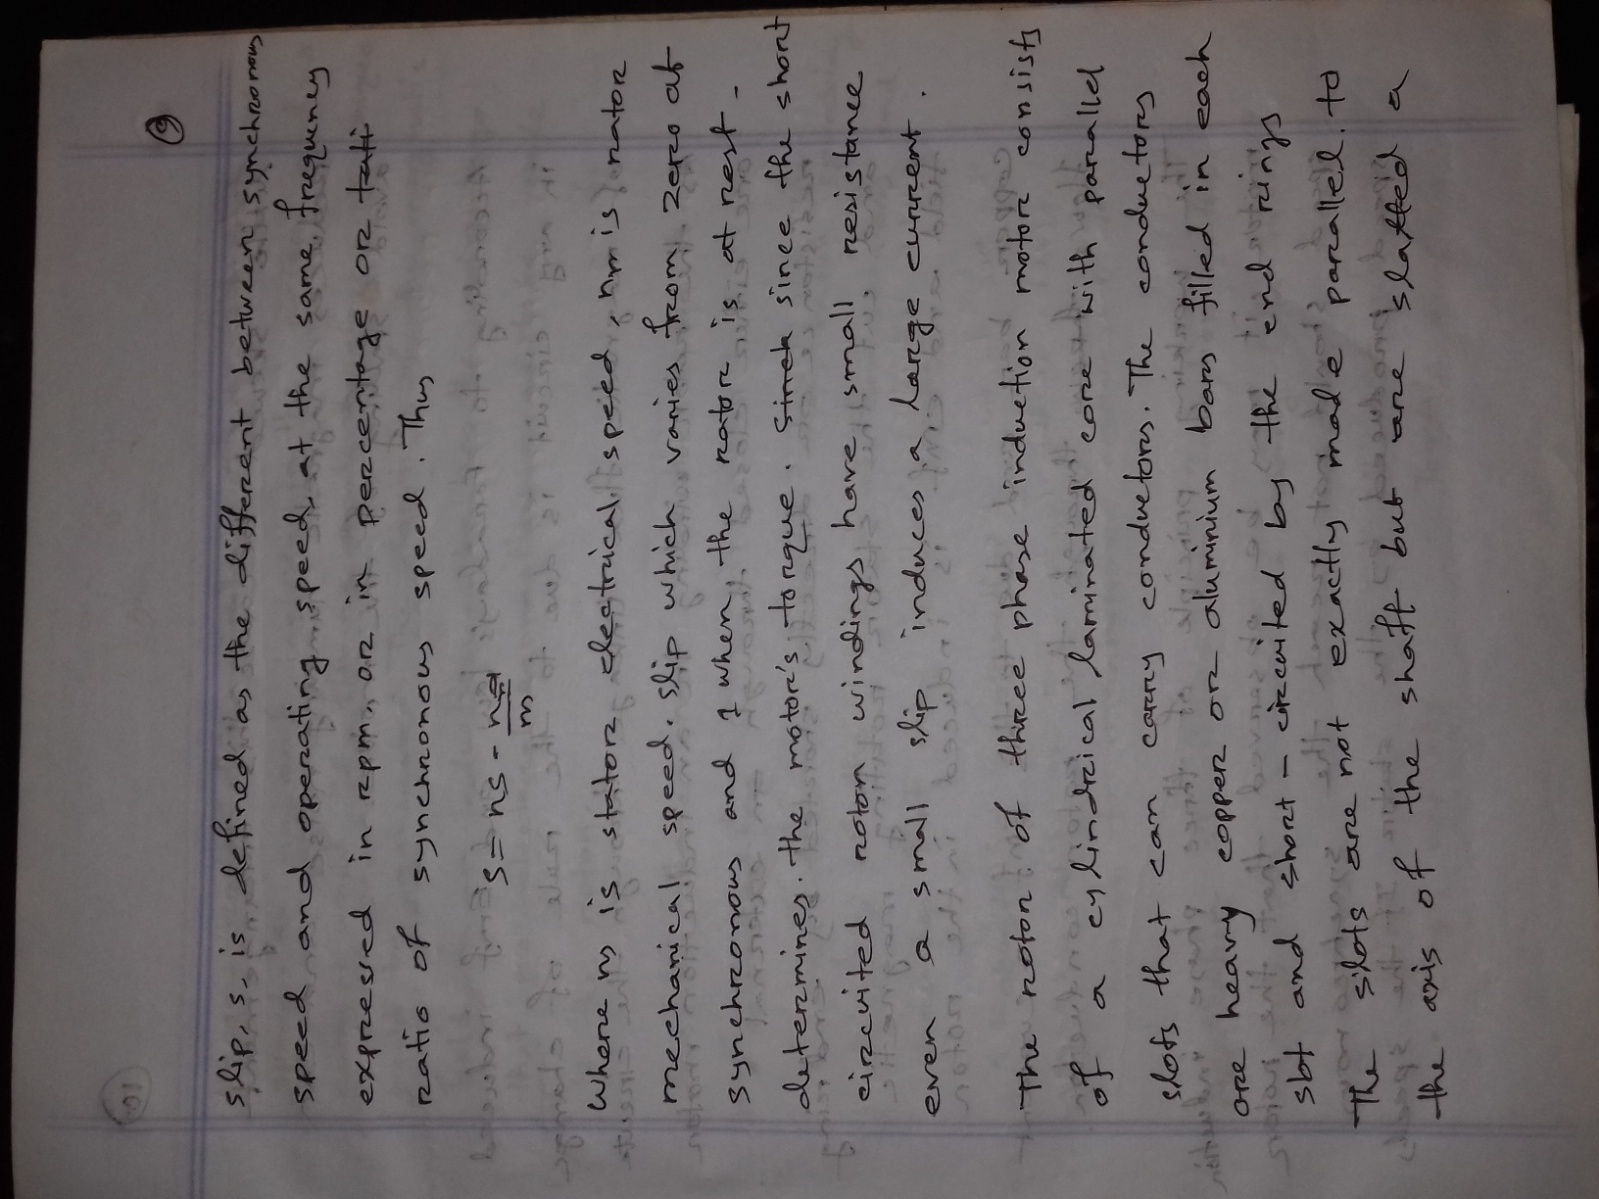 9
slip, s, is defined as the different between synchronous
speed and operating speed, at the same frequency
expressed in rpm, or in percentage or
ratio of synchronous speed. Thus
S = ns -
Where ns is stator electrical speed, nm is rotor
mechanical speed. slip which varies from zero at
synchronous and 1 when the rotor is at rest -
determines. the motor's torque. since the short
circuited rotom windings have small resistance
even a small slip induces a large current.
The rotor of three phase induction motor consists
of a cylindrical laminated core with parallel
slots that can carry conductors. The conductors
are heavy copper or aluminium bars filled in each
slot and short - circuited by the end rings
The slots are not exactly made parallel. to
the axis of the shaft but are slatted a